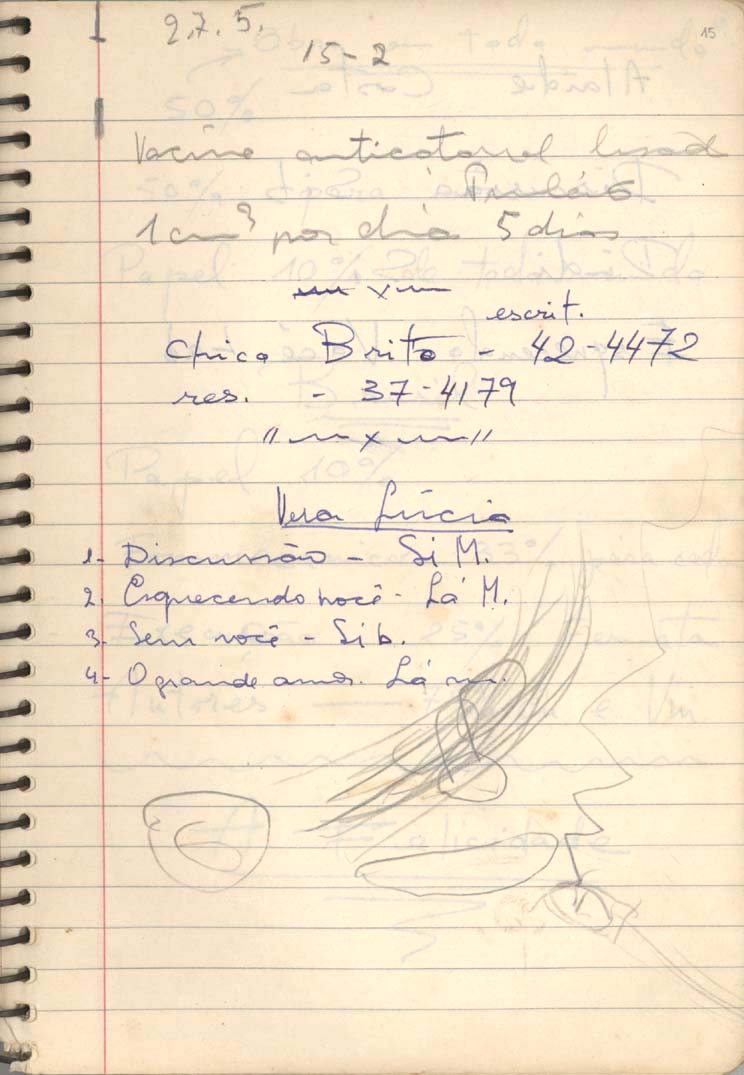 15
2.7.5.
15-2
Vacina anticatarral
1 cm3 por dia 5 dias
x
escrit.
Chico Brito - 42-4472
res. - 37-4179
" x "
Vera Lúcia
1- Discussão - Si M.
2. Esquecendo você - Lá M.
3- Sem você - Si b.
4- O grande amor. Lá m.